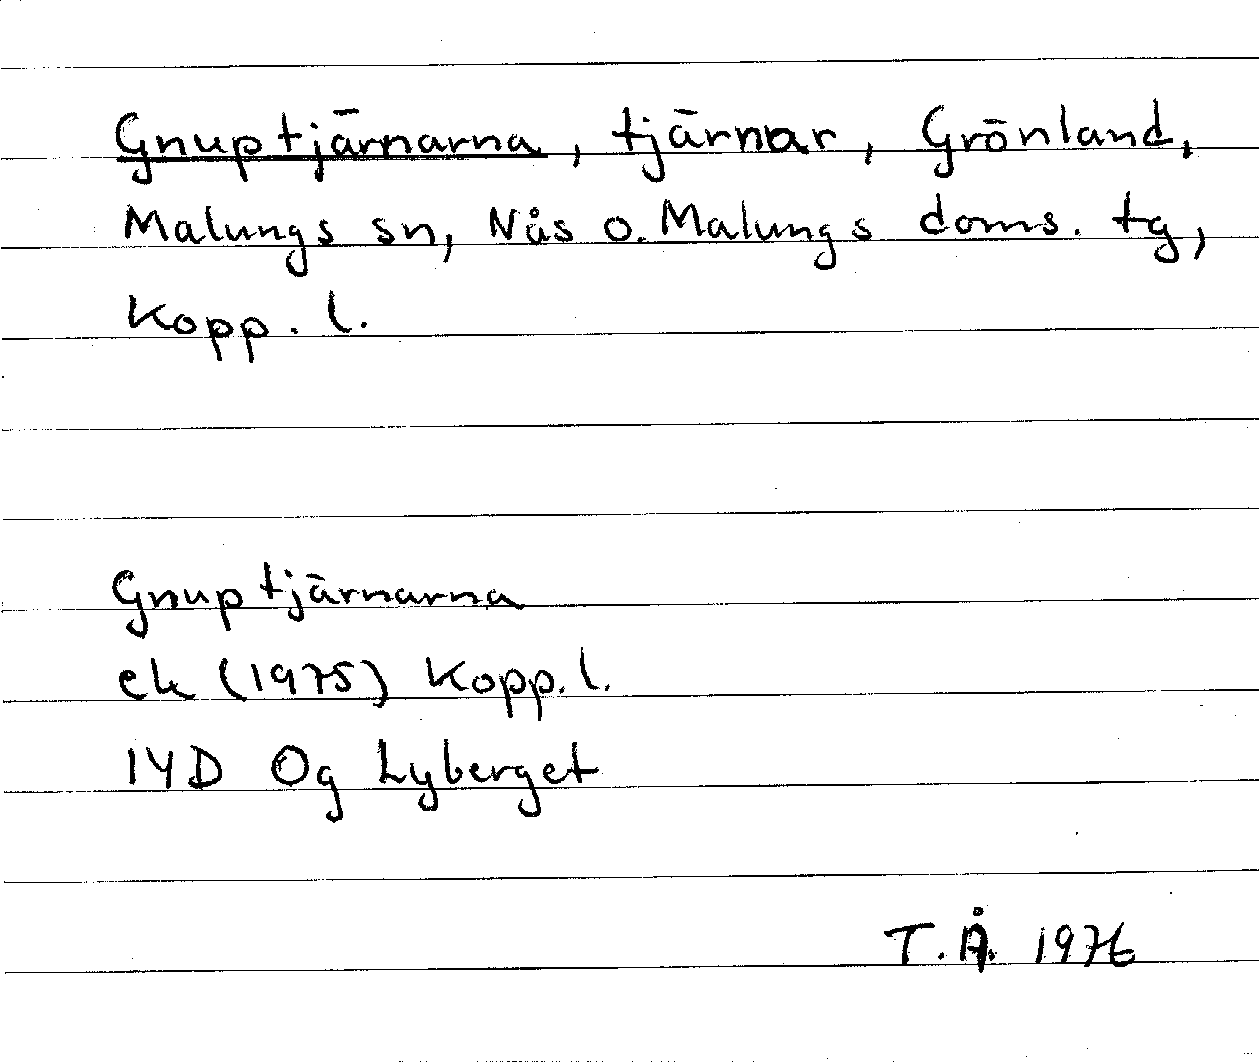 Gnuptjärnarna, tjärnar, Grönland,
Malungs sn, Nås o. Malungs doms. tg,
Kopp. l.
Gnuptjärnarna
ek (1975) Kopp. l.
14D Og Lyberget
T.Å. 1976